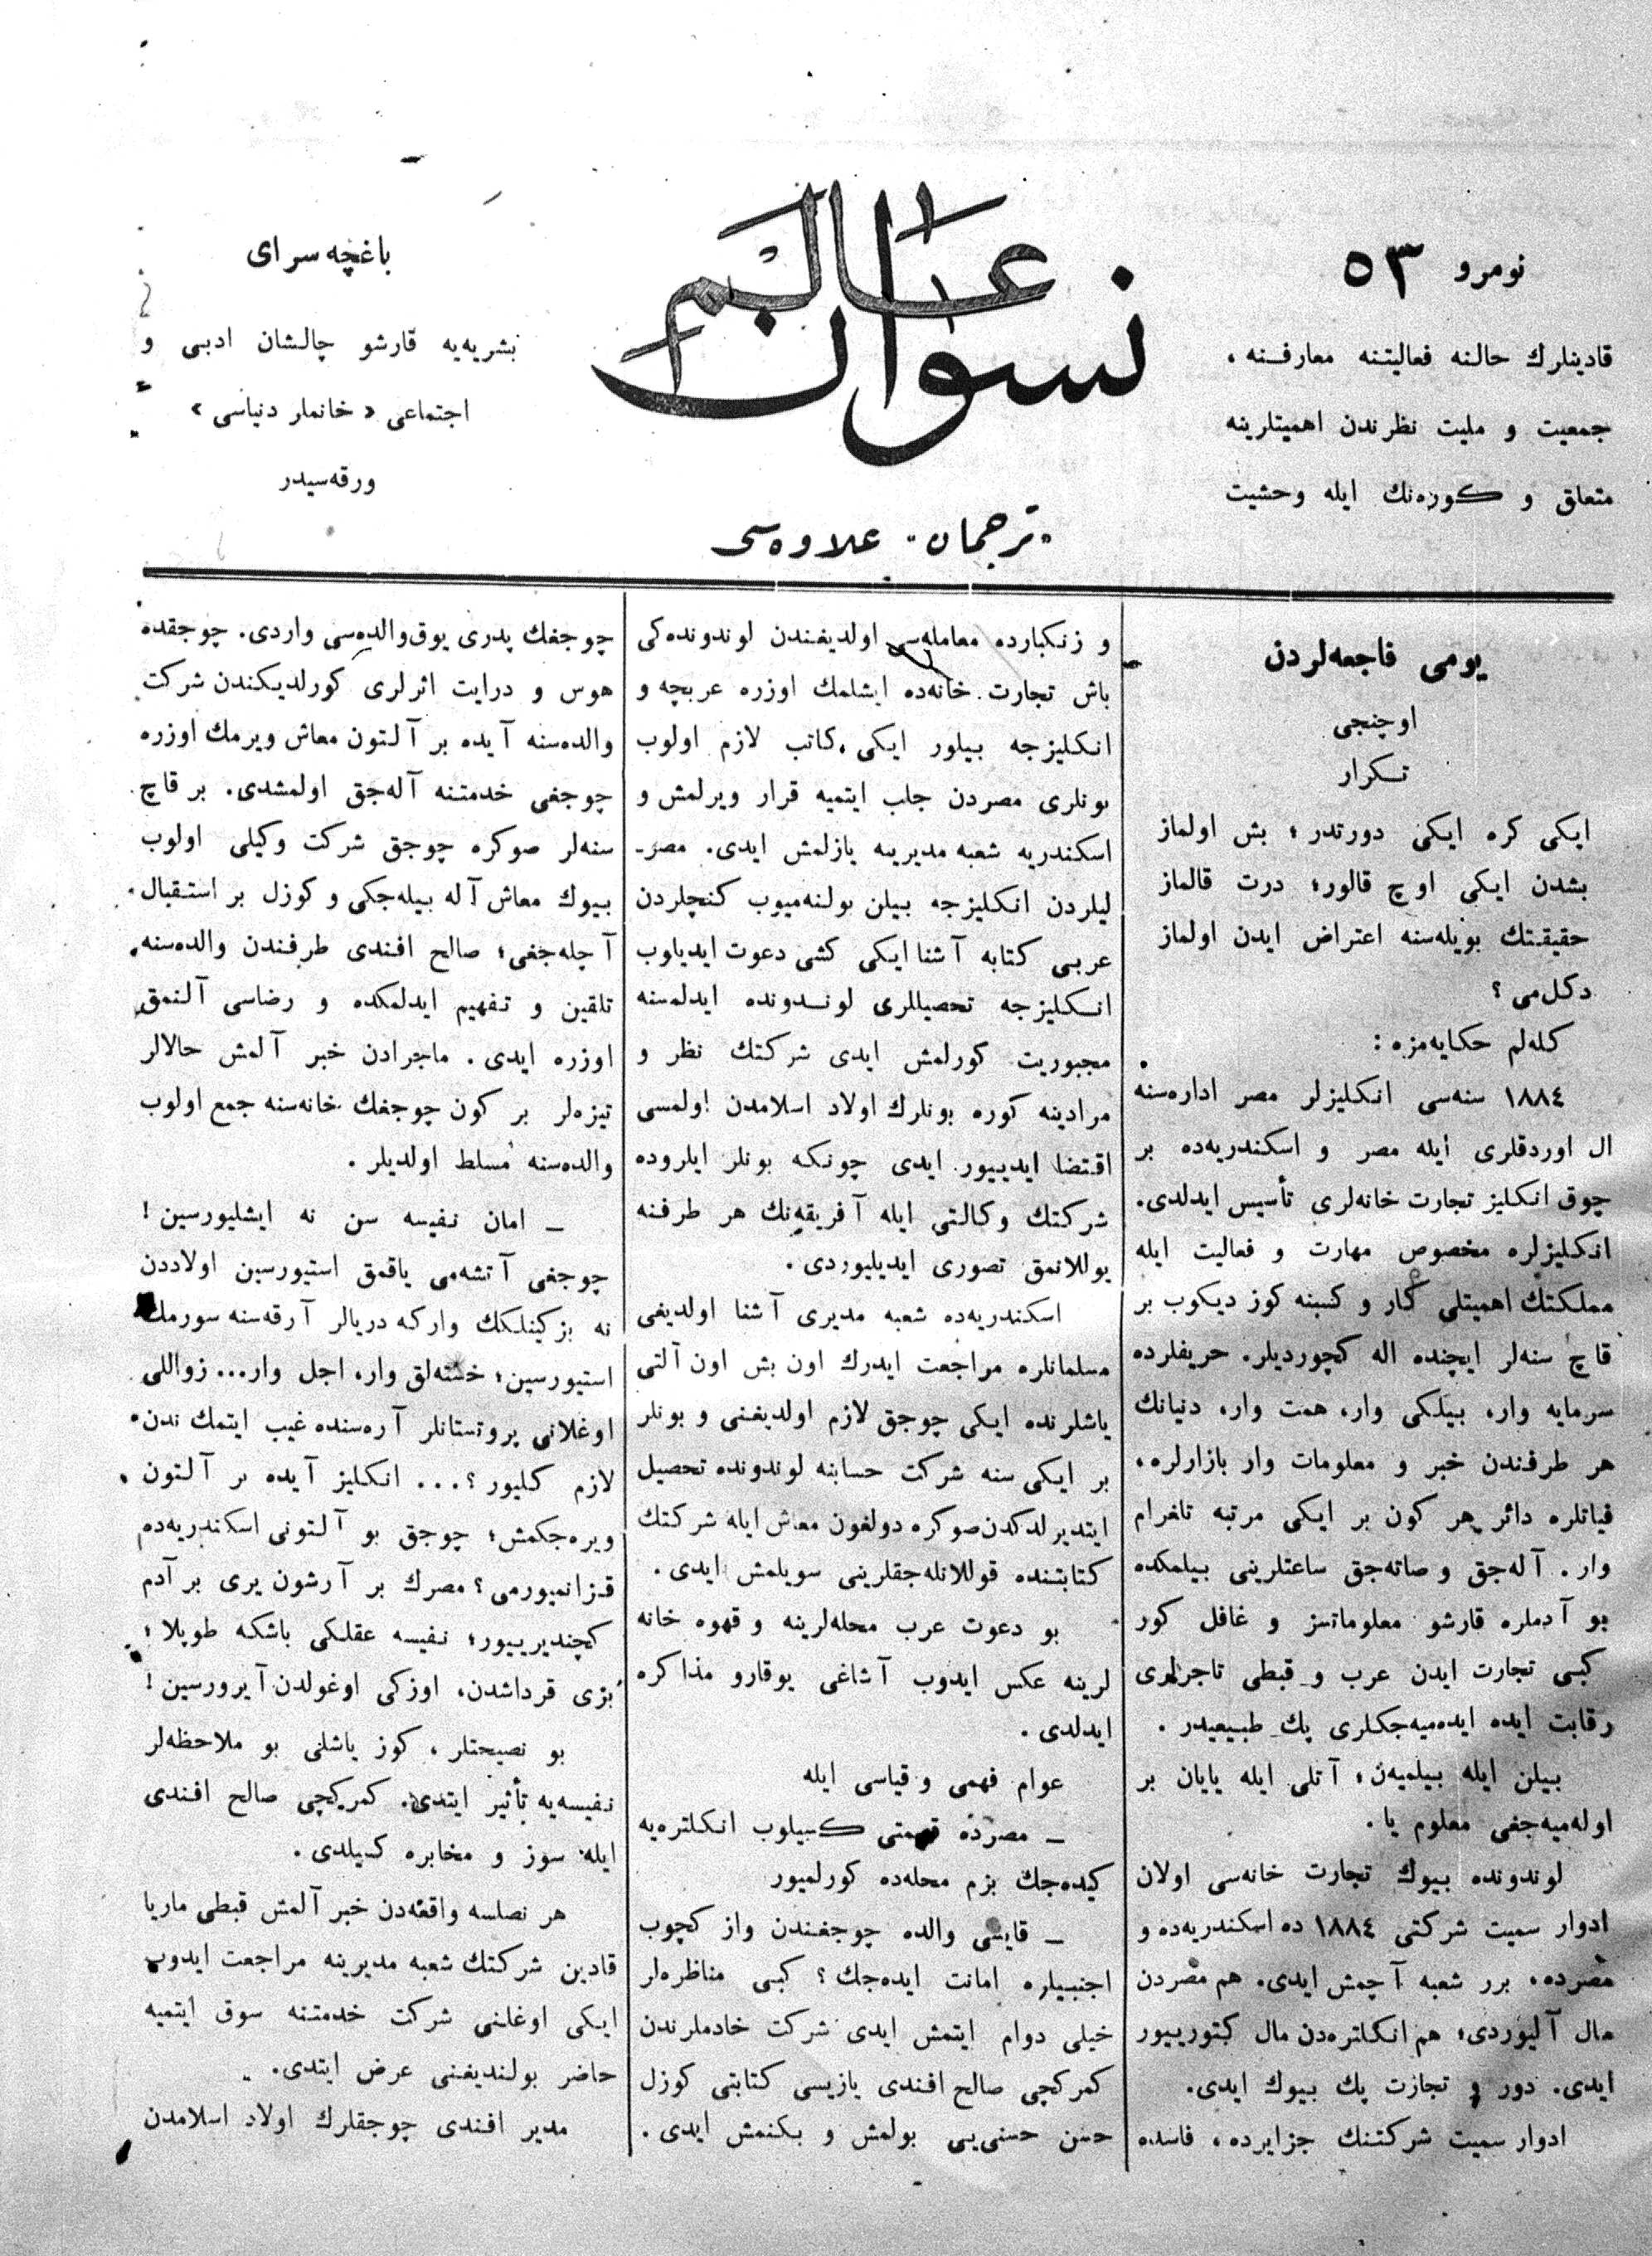 نومرو ٥٣
قادينلرك حالنه فعاليتنه معارفنه،
جمعيت و مليت نظرندن اهميتلرينه
متعلق و كورەنك ايله وحشيت
عالم نسوان
«ترجمان» علاوەسى
باغچه سراى
بشريەيه قارشو چالشان ادبى و
اجتماعى «خانملر دنياسى»
ورقەسيدر
يومى فاجعەلردن
اوچنجى
تكرار
ايكى كره ايكى دورتدر؛ بش اولماز
بشدن ايكى اوچ قالور؛ درت قالماز
حقيقتك بويلەسنه اعتراض ايدن اولماز
دكل‌مى؟
كلەلم حكايەمزه:
١٨٨٤ سنەسى انكليزلر مصر ادارەسنه
ال اوردقلرى ايله مصر و اسكندريەده بر
چوق انكليز تجارت خانەلرى تأسيس ايدلدى.
انكليزلره مخصوص مهارت و فعاليت ايله
مملكتك اهميتلى كار و كسبنه كوز ديكوب بر
قاچ سنەلر ايچنده اله كچورديلر. حريفلرده
سرمايه وار، بيلكى وار، همت وار، دنيانك
هر طرفندن خبر و معلومات وار بازارلره،
فياتلره دائر هر كون بر ايكى مرتبه تلغرام
وار. آلەجق و صاتەجق ساعتلرينى بيلمكده
بو آدملره قارشو معلوماتسز و غافل كور
كبى تجارت ايدن عرب و قبطى تاجرلرى
رقابت ايده ايدەميەجكلرى پك طبيعيدر.
بيلن ايله بيلميەن، آتلى ايله يايان بر
اولەميەجغى معلوم يا.
لوندونده بيوك تجارت خانەسى اولان
ادوار سميت شركتى ١٨٨٤ ده اسكندريەده و
مصرده، برر شعبه آچمش ايدى. هم مصردن
مال آليوردى؛ هم انكلترەدن مال كتورييور
ايدى. دور و تجارت پك بيوك ايدى.
ادوار سميت شركتنك جزايرده، فاسده
و زنكبارده معاملەسى اولديغندن لوندوندەكى
باش تجارت خانەده ايشلمك اوزره عربچه و
انكليزجه بيلور ايكى كاتب لازم اولوب
بونلرى مصردن جلب ايتميه قرار ويرلمش و
اسكندريه شعبه مديرينه يازلمش ايدى. مصر-
ليلردن انكليزجه بيلن بولنەميوب كنچلردن
عربى كتابه آشنا ايكى كشى دعوت ايديلوب
انكليزجه تحصيللرى لوندونده ايدلمسنه
مجبوريت كورلمش ايدى شركتك نظر و
مرادينه كوره بونلرك اولاد اسلامدن اولمسى
اقتضا ايدييور ايدى چونكه بونلر ايلروده
شركتك وكالتى ايله آفريقەنك هر طرفنه
يوللانمق تصورى ايديليوردى.
اسكندريەده شعبه مديرى آشنا اولديغى
مسلمانلره مراجعت ايدرك اون بش اون آلتى
ياشلرنده ايكى چوجق لازم اولديغنى و بونلر
بر ايكى سنه شركت حسابنه لوندونده تحصيل
ايتديرلدكدن صوكره دولغون معاش ايله شركتك
كتابتنده قوللانلەجقلرينى سويلمش ايدى.
بو دعوت عرب محلەلرينه و قهوه خانه
لرينه عكس ايدوب آشاغى يوقارو مذاكره
ايدلدى.
عوام فهمى و قياسى ايله
– مصرده قسمتى كسيلوب انكلترەيه
كيدەجك بزم محلەده كورلميور
– قايسى والده چوجغندن واز كچوب
اجنبيلره امانت ايدەجك؟ كبى مناظرەلر
خيلى دوام ايتمش ايدى شركت خادملرندن
كمركچى صالح افندى يازيسى كتابتى كوزل
حسن حسنى‌يى بولمش و بكنمش ايدى.
چوجغك پدرى يوق والدەسى واردى. چوجقده
هوس و درايت اثرلرى كورلديكندن شركت
والدەسنه آيده بر آلتون معاش ويرمك اوزره
چوجغى خدمتنه آلەجق اولمشدى. بر قاچ
سنەلر صوكره چوجق شركت وكيلى اولوب
بيوك معاش آله بيلەجكى و كوزل بر استقبال
آچلەجغى؛ صالح افندى طرفندن والدەسنه
تلقين و تفهيم ايدلمكده و رضاسى آلنمق
اوزره ايدى. ماجرادن خبر آلمش حالالر
تيزەلر بر كون چوجغك خانەسنه جمع اولوب
والدەسنه مسلط اولديلر.
– امان نفيسه سن نه ايشليورسين!
چوجغى آتشەمى ياقمق استيورسين اولاددن
نه بزكينلكك واركه دريالر آرقەسنه سورمك
استيورسين؛ خستەلق وار، اجل وار... زواللى
اوغلانى پروتستانلر آرەسنده غيب ايتمك ندن
لازم كليور؟... انكليز آيده بر آلتون
ويرەجكمش؛ چوجق بو آلتونى اسكندريەده
قزانميورمى؟ مصرك بر آرشون يرى بر آدم
كچنديرييور؛ نفيسه عقلكى باشكه طوپلا؛
بزى قرداشدن، اوزكى اوغولدن آيرورسين!
بو نصيحتلر، كوز ياشلى بو ملاحظەلر
نفيسەيه تأثير ايتدى. كمركچى صالح افندى
ايله سوز و مخابره كسيلدى.
هر نصلسه واقعەدن خبر آلمش قبطى ماريا
قادين شركتك شعبه مديرينه مراجعت ايدوب
ايكى اوغلنى شركت خدمتنه سوق ايتميه
حاضر بولنديغنى عرض ايتدى.
مدير افندى چوجقلرك اولاد اسلامدن